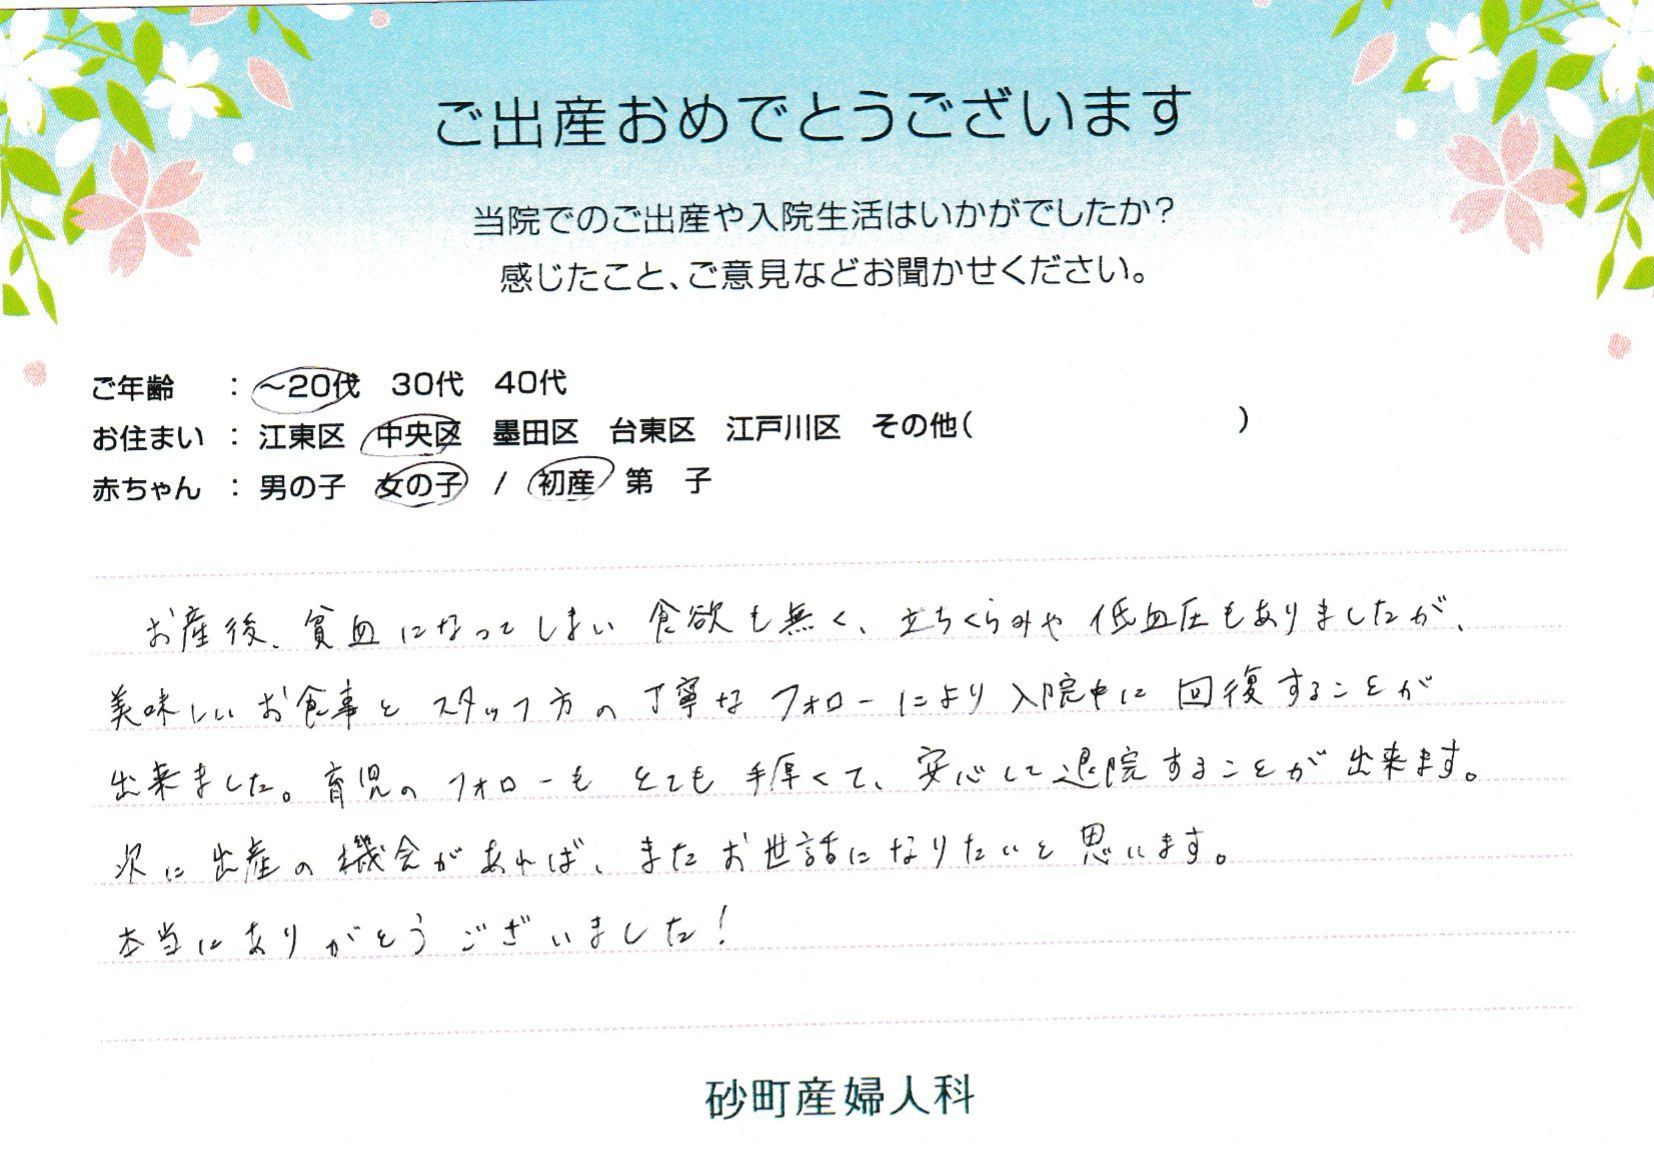 ご出産おめでとうございます
当院でのご出産や入院生活はいかがでしたか?
感じたこと、ご意見などお聞かせください。
ご年齢 : ~20代 30代 40代
お住まい : 江東区 中央区 墨田区 台東区 江戸川区 その他( )
赤ちゃん : 男の子 女の子 / 初産 第 子
お産後、貧血になってしまい食欲も無く、立ちくらみや低血圧もありましたが、
美味しいお食事とスタッフ方の丁寧なフォローにより入院中に回復することが
出来ました。育児のフォローもとても手厚くて、安心して退院することが出来ます。
次に出産の機会があれば、またお世話になりたいと思います。
本当にありがとうございました!
砂町産婦人科